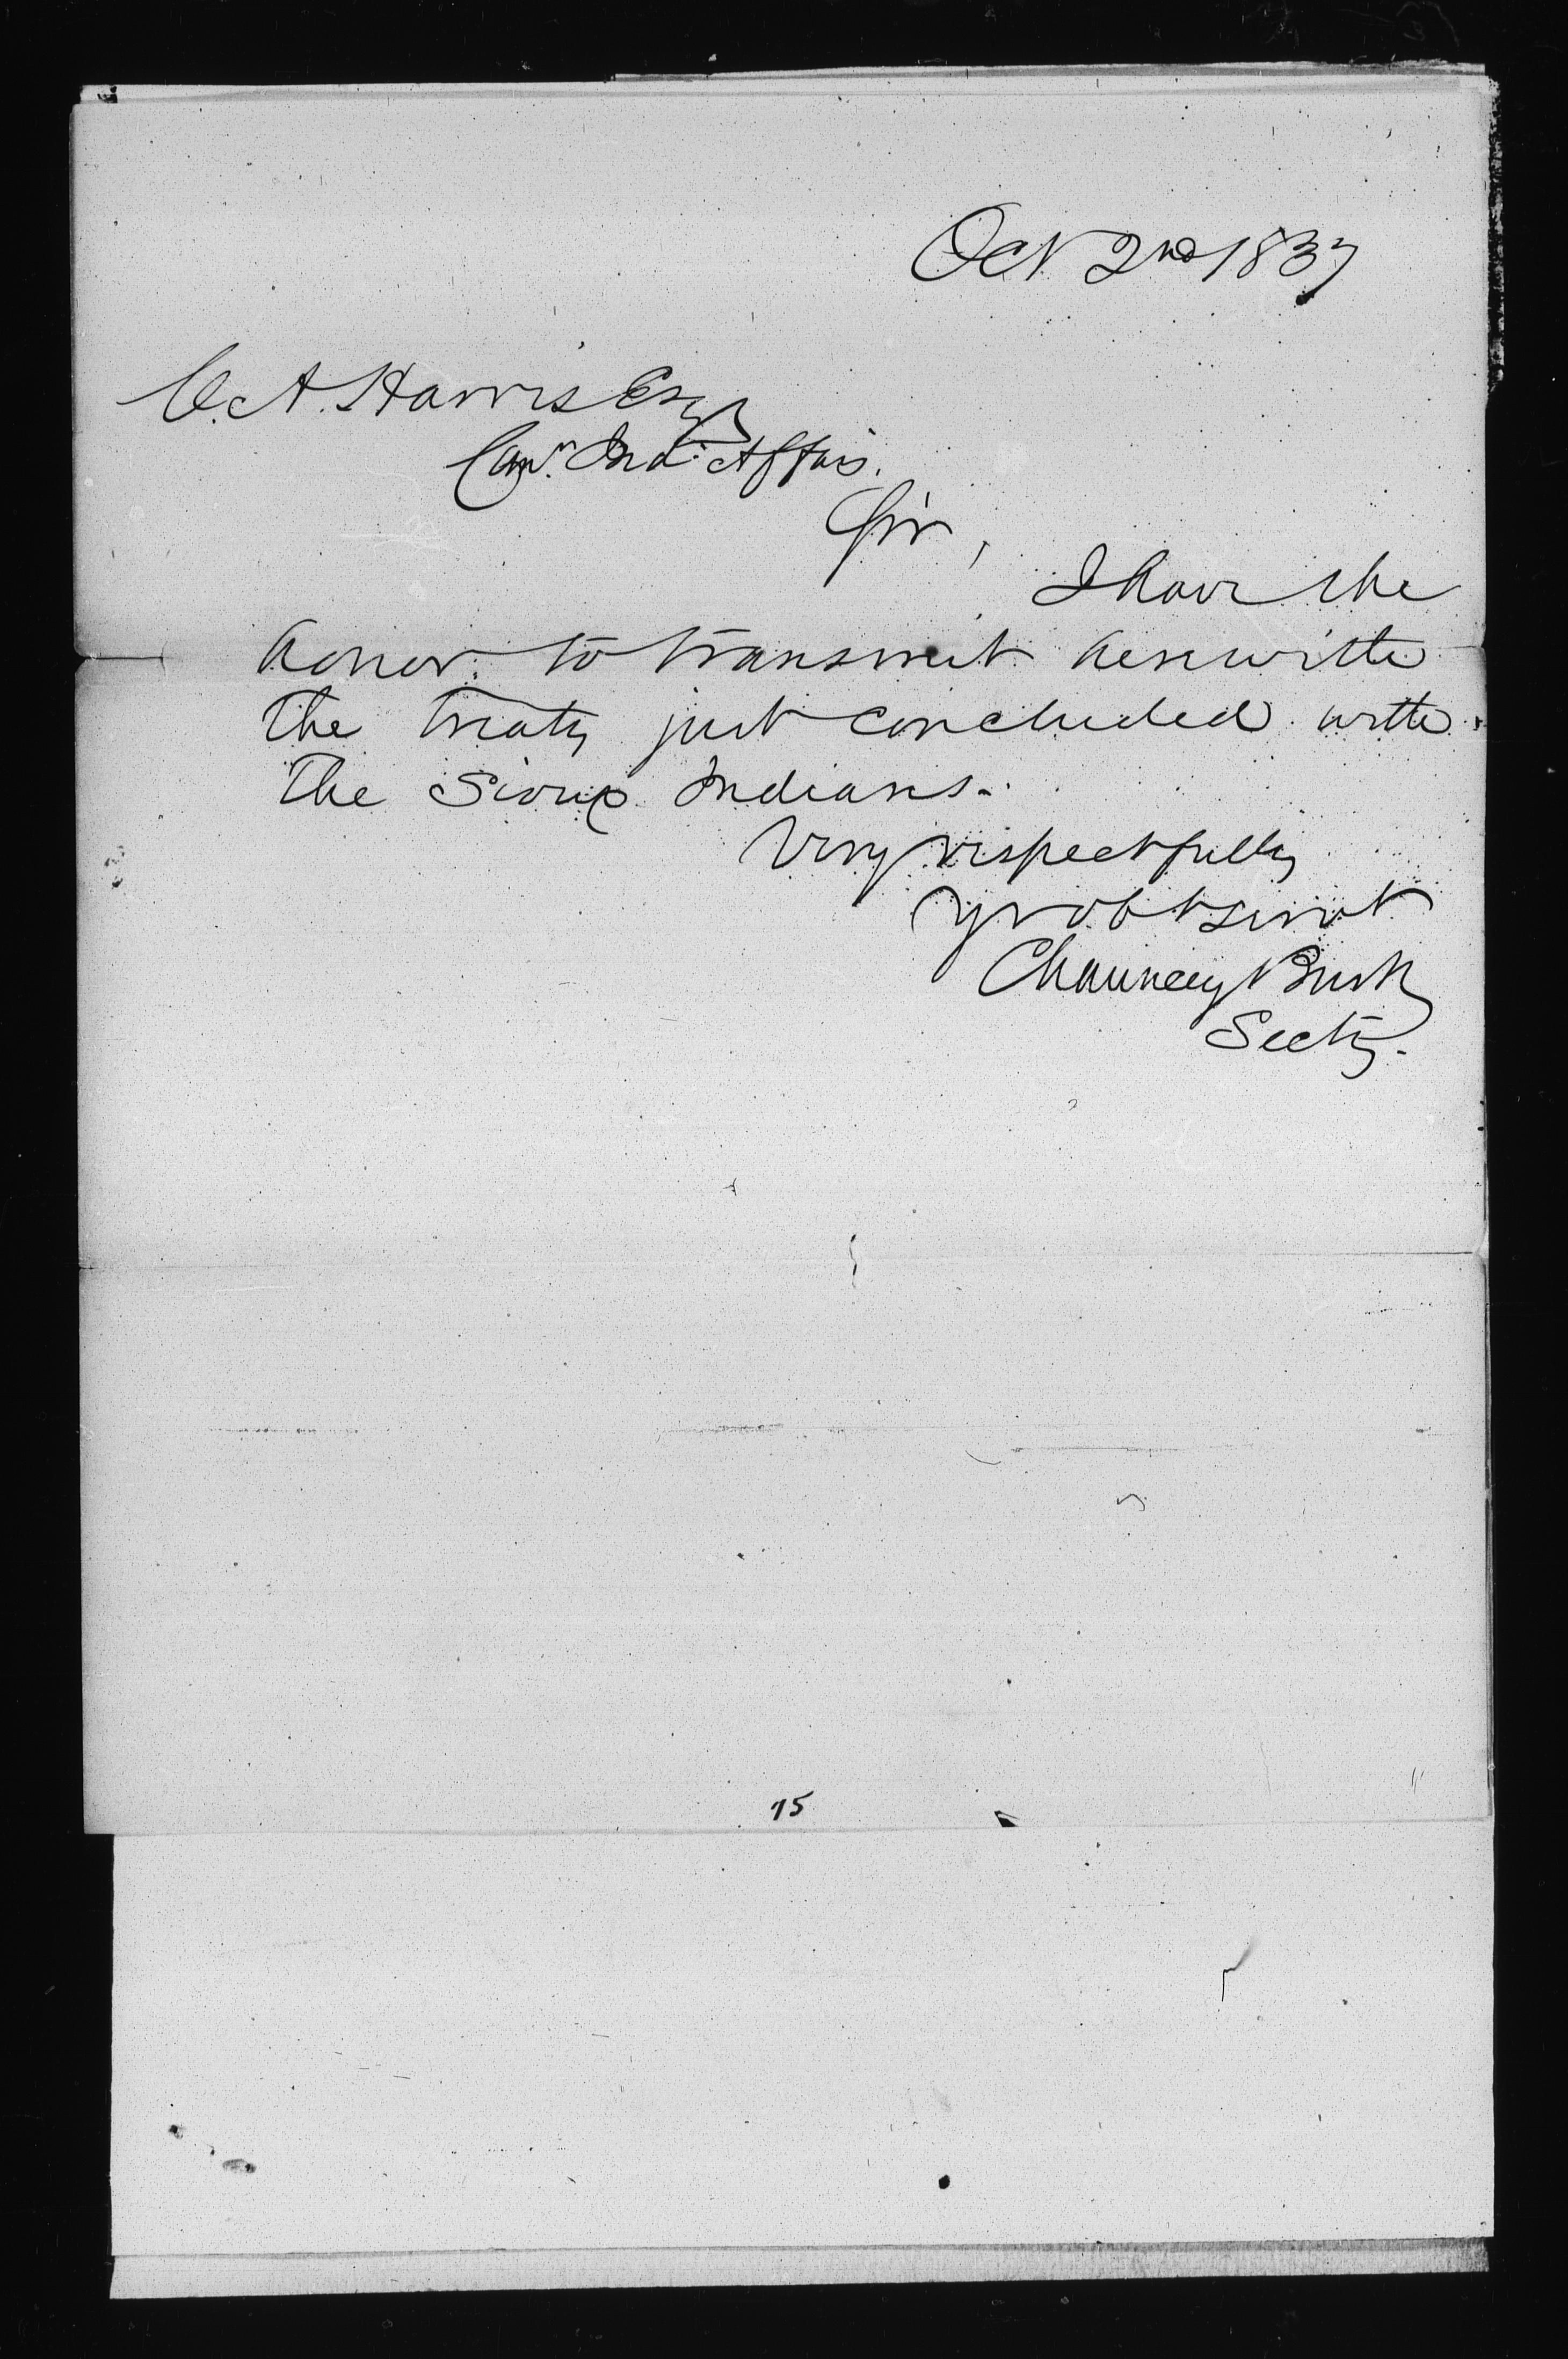 Oct 2nd 1837
C. A. Harris Esqr
Comr. Ind: Affairs.
Sir,
I have the
honor to transmit herewith
the treaty just concluded with
the Sioux Indians.
Very respectfully
yr obt servt
Chauncey Bush
Secty.
15